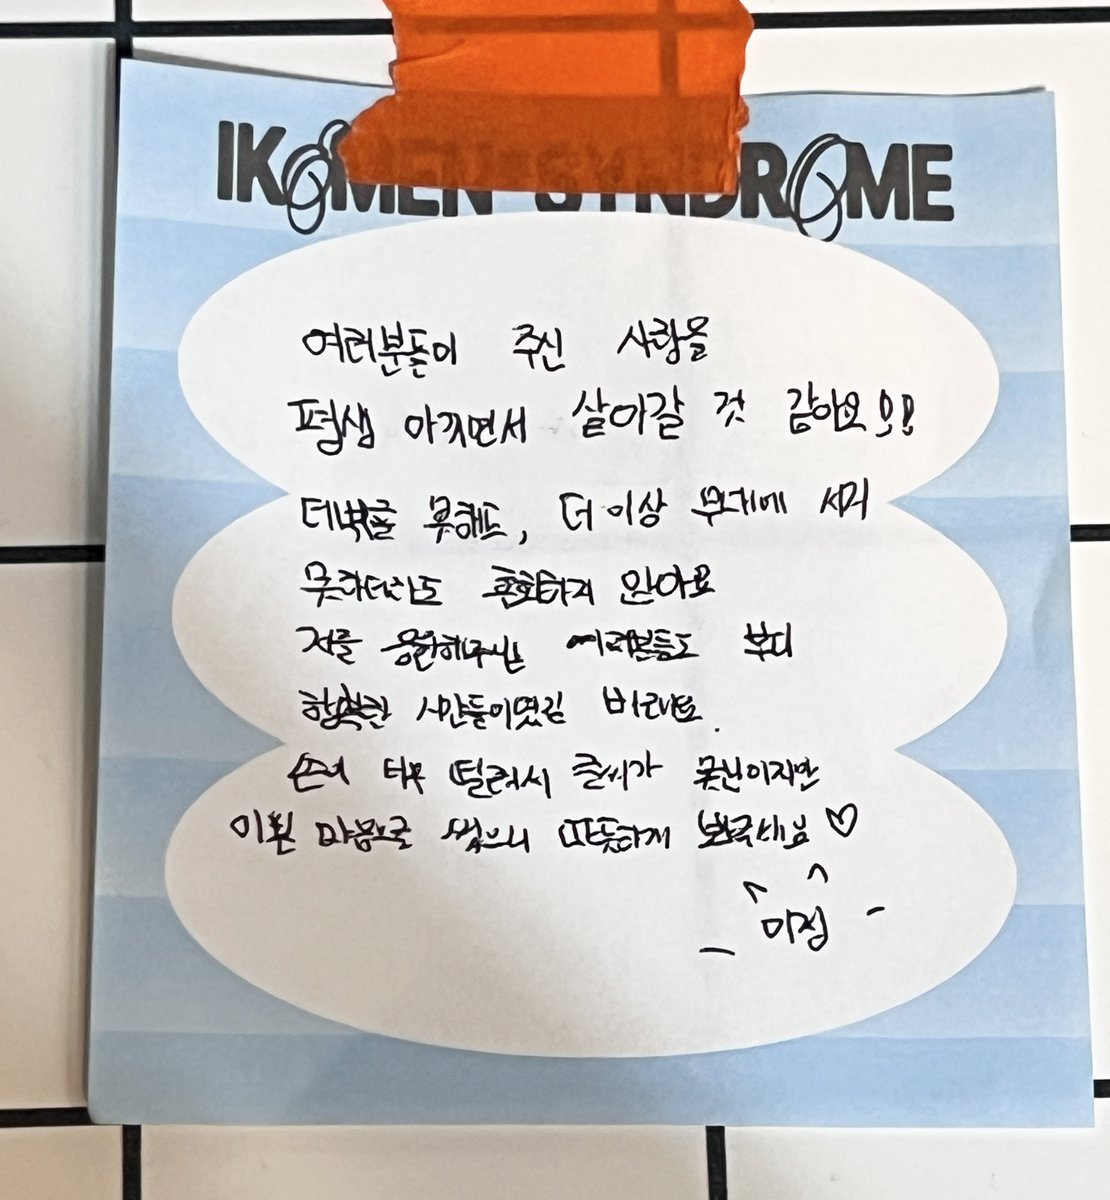 IKOMEN SYNDROME
여러분들이 주신 사랑을
평생 아끼면서 살아갈 것 같아요!!
데뷔를 못해도, 더 이상 무대에 서지
못하더라도 후회하지 않아요
저를 응원해주시는 여러분들도 부디
행복한 시간들이였길 바래요.
손이 너무 떨려서 글씨가 못난이지만
이쁜 마음으로 썼으니 따뜻하게 봐주세요♡
미정